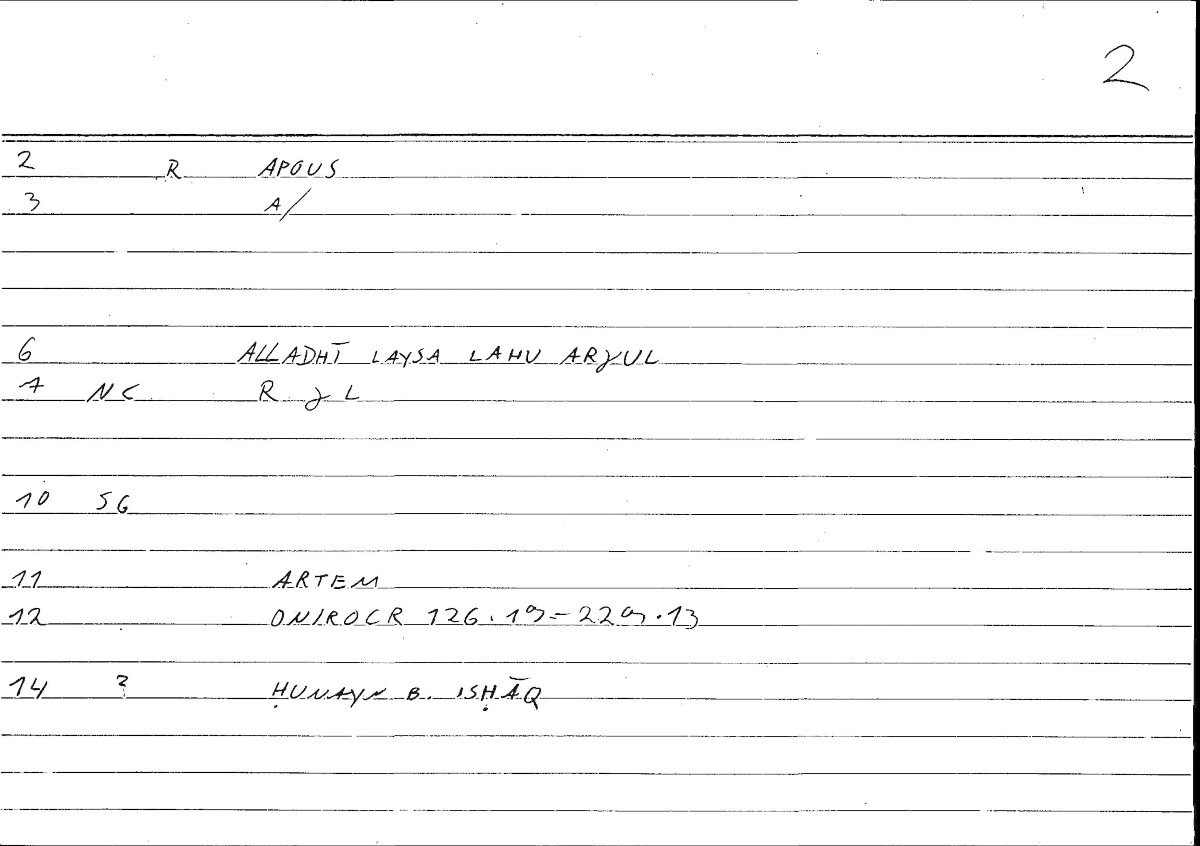 2
2 R APOUS
3 A/
6 ALLADHĪ LAYSA LAHU ARɣUL
7 NC R ɣ L
10 SG
11 ARTEM
12 ONIROCR 126.19=229.13
14 ? ḤUNAYN B. ISḤĀQ